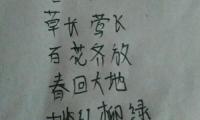 草长 莺飞
百花齐放
春回大地
桃红柳绿